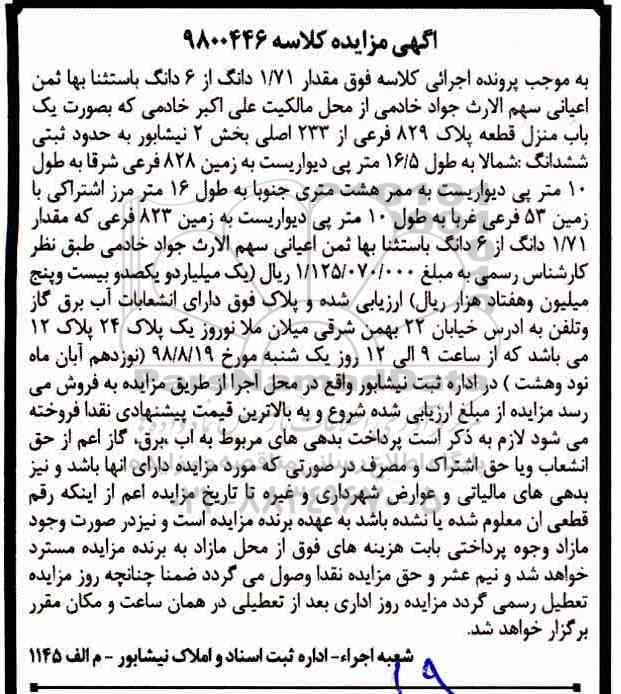 آگهی مزایده کلاسه ۹۸۰۰۴۴۶
به موجب پرونده اجرائی کلاسه فوق مقدار ۱/۷۱ دانگ از ۶ دانگ باستثنا بها ثمن
اعیانی سهم الارث جواد خادمی از محل مالکیت علی اکبر خادمی که بصورت یک
باب منزل قطعه پلاک ۸۲۹ فرعی از ۲۳۳ اصلی بخش ۲ نیشابور به حدود ثبتی
ششدانگ :شمالا به طول ۱۶/۵ متر پی دیواریست به زمین ۸۲۸ فرعی شرقا به طول
۱۰ متر پی دیواریست به ممر هشت متری جنوبا به طول ۱۶ متر مرز اشتراکی با
زمین ۵۳ فرعی غربا به طول ۱۰ متر پی دیواریست به زمین ۸۲۳ فرعی که مقدار
۱/۷۱ دانگ از ۶ دانگ باستثنا بها ثمن اعیانی سهم الارث جواد خادمی طبق نظر
کارشناس رسمی به مبلغ ۱/۱۲۵/۰۷۰/۰۰۰ ریال (یک میلیاردو یکصدو بیست وپنج
میلیون وهفتاد هزار ریال) ارزیابی شده و پلاک فوق دارای انشعابات آب برق گاز
وتلفن به ادرس خیابان ۲۲ بهمن شرقی میلان ملا نوروز یک پلاک ۲۴ پلاک ۱۲
می باشد که از ساعت ۹ الی ۱۲ روز یک شنبه مورخ ۹۸/۸/۱۹ (نوزدهم آبان ماه
نود وهشت ) در اداره ثبت نیشابور واقع در محل اجرا از طریق مزایده به فروش می
رسد مزایده از مبلغ ارزیابی شده شروع و به بالاترین قیمت پیشنهادی نقدا فروخته
می شود لازم به ذکر است پرداخت بدهی های مربوط به اب ،برق، گاز اعم از حق
انشعاب ویا حق اشتراک و مصرف در صورتی که مورد مزایده دارای انها باشد و نیز
بدهی های مالیاتی و عوارض شهرداری و غیره تا تاریخ مزایده اعم از اینکه رقم
قطعی ان معلوم شده یا نشده باشد به عهده برنده مزایده است و نیزدر صورت وجود
مازاد وجوه پرداختی بابت هزینه های فوق از محل مازاد به برنده مزایده مسترد
خواهد شد و نیم عشر و حق مزایده نقدا وصول می گردد ضمنا چنانچه روز مزایده
تعطیل رسمی گردد مزایده روز اداری بعد از تعطیلی در همان ساعت و مکان مقرر
برگزار خواهد شد.
شعبه اجراء- اداره ثبت اسناد و املاک نیشابور - م الف ۱۱۴۵